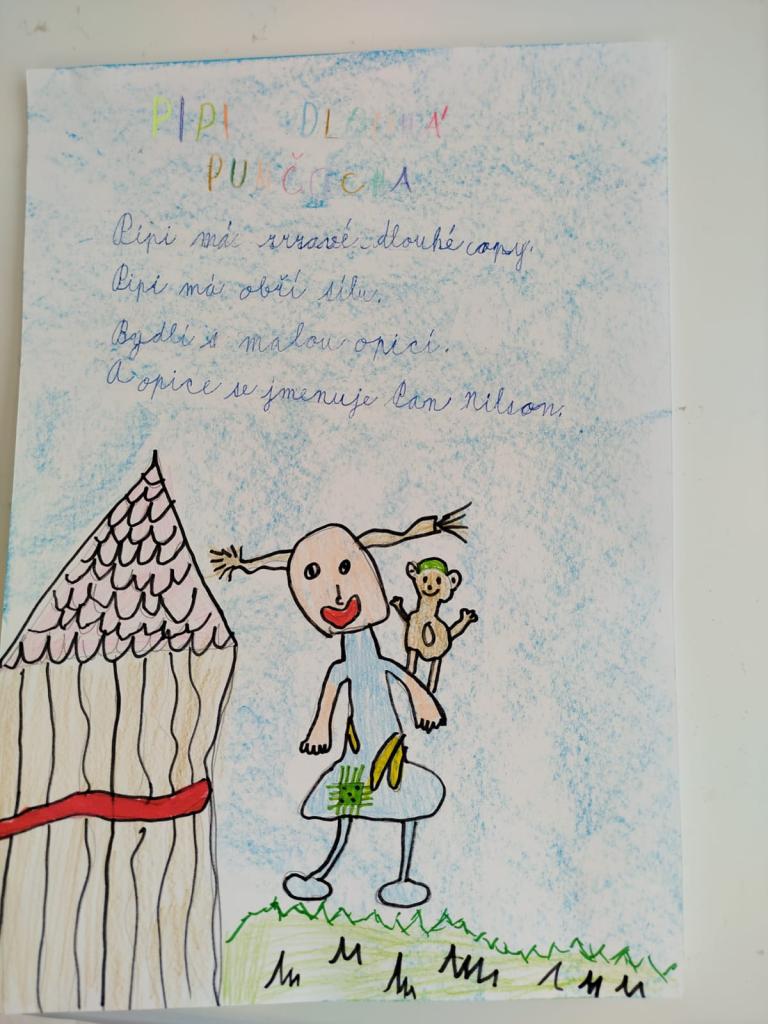 PIPI DLOUHÁ
PUNČOCHA
Pipi má zrzavé dlouhé copy.
Pipi má obří sílu.
Bydlí s malou opicí.
A opice se jmenuje Pan Nilson.